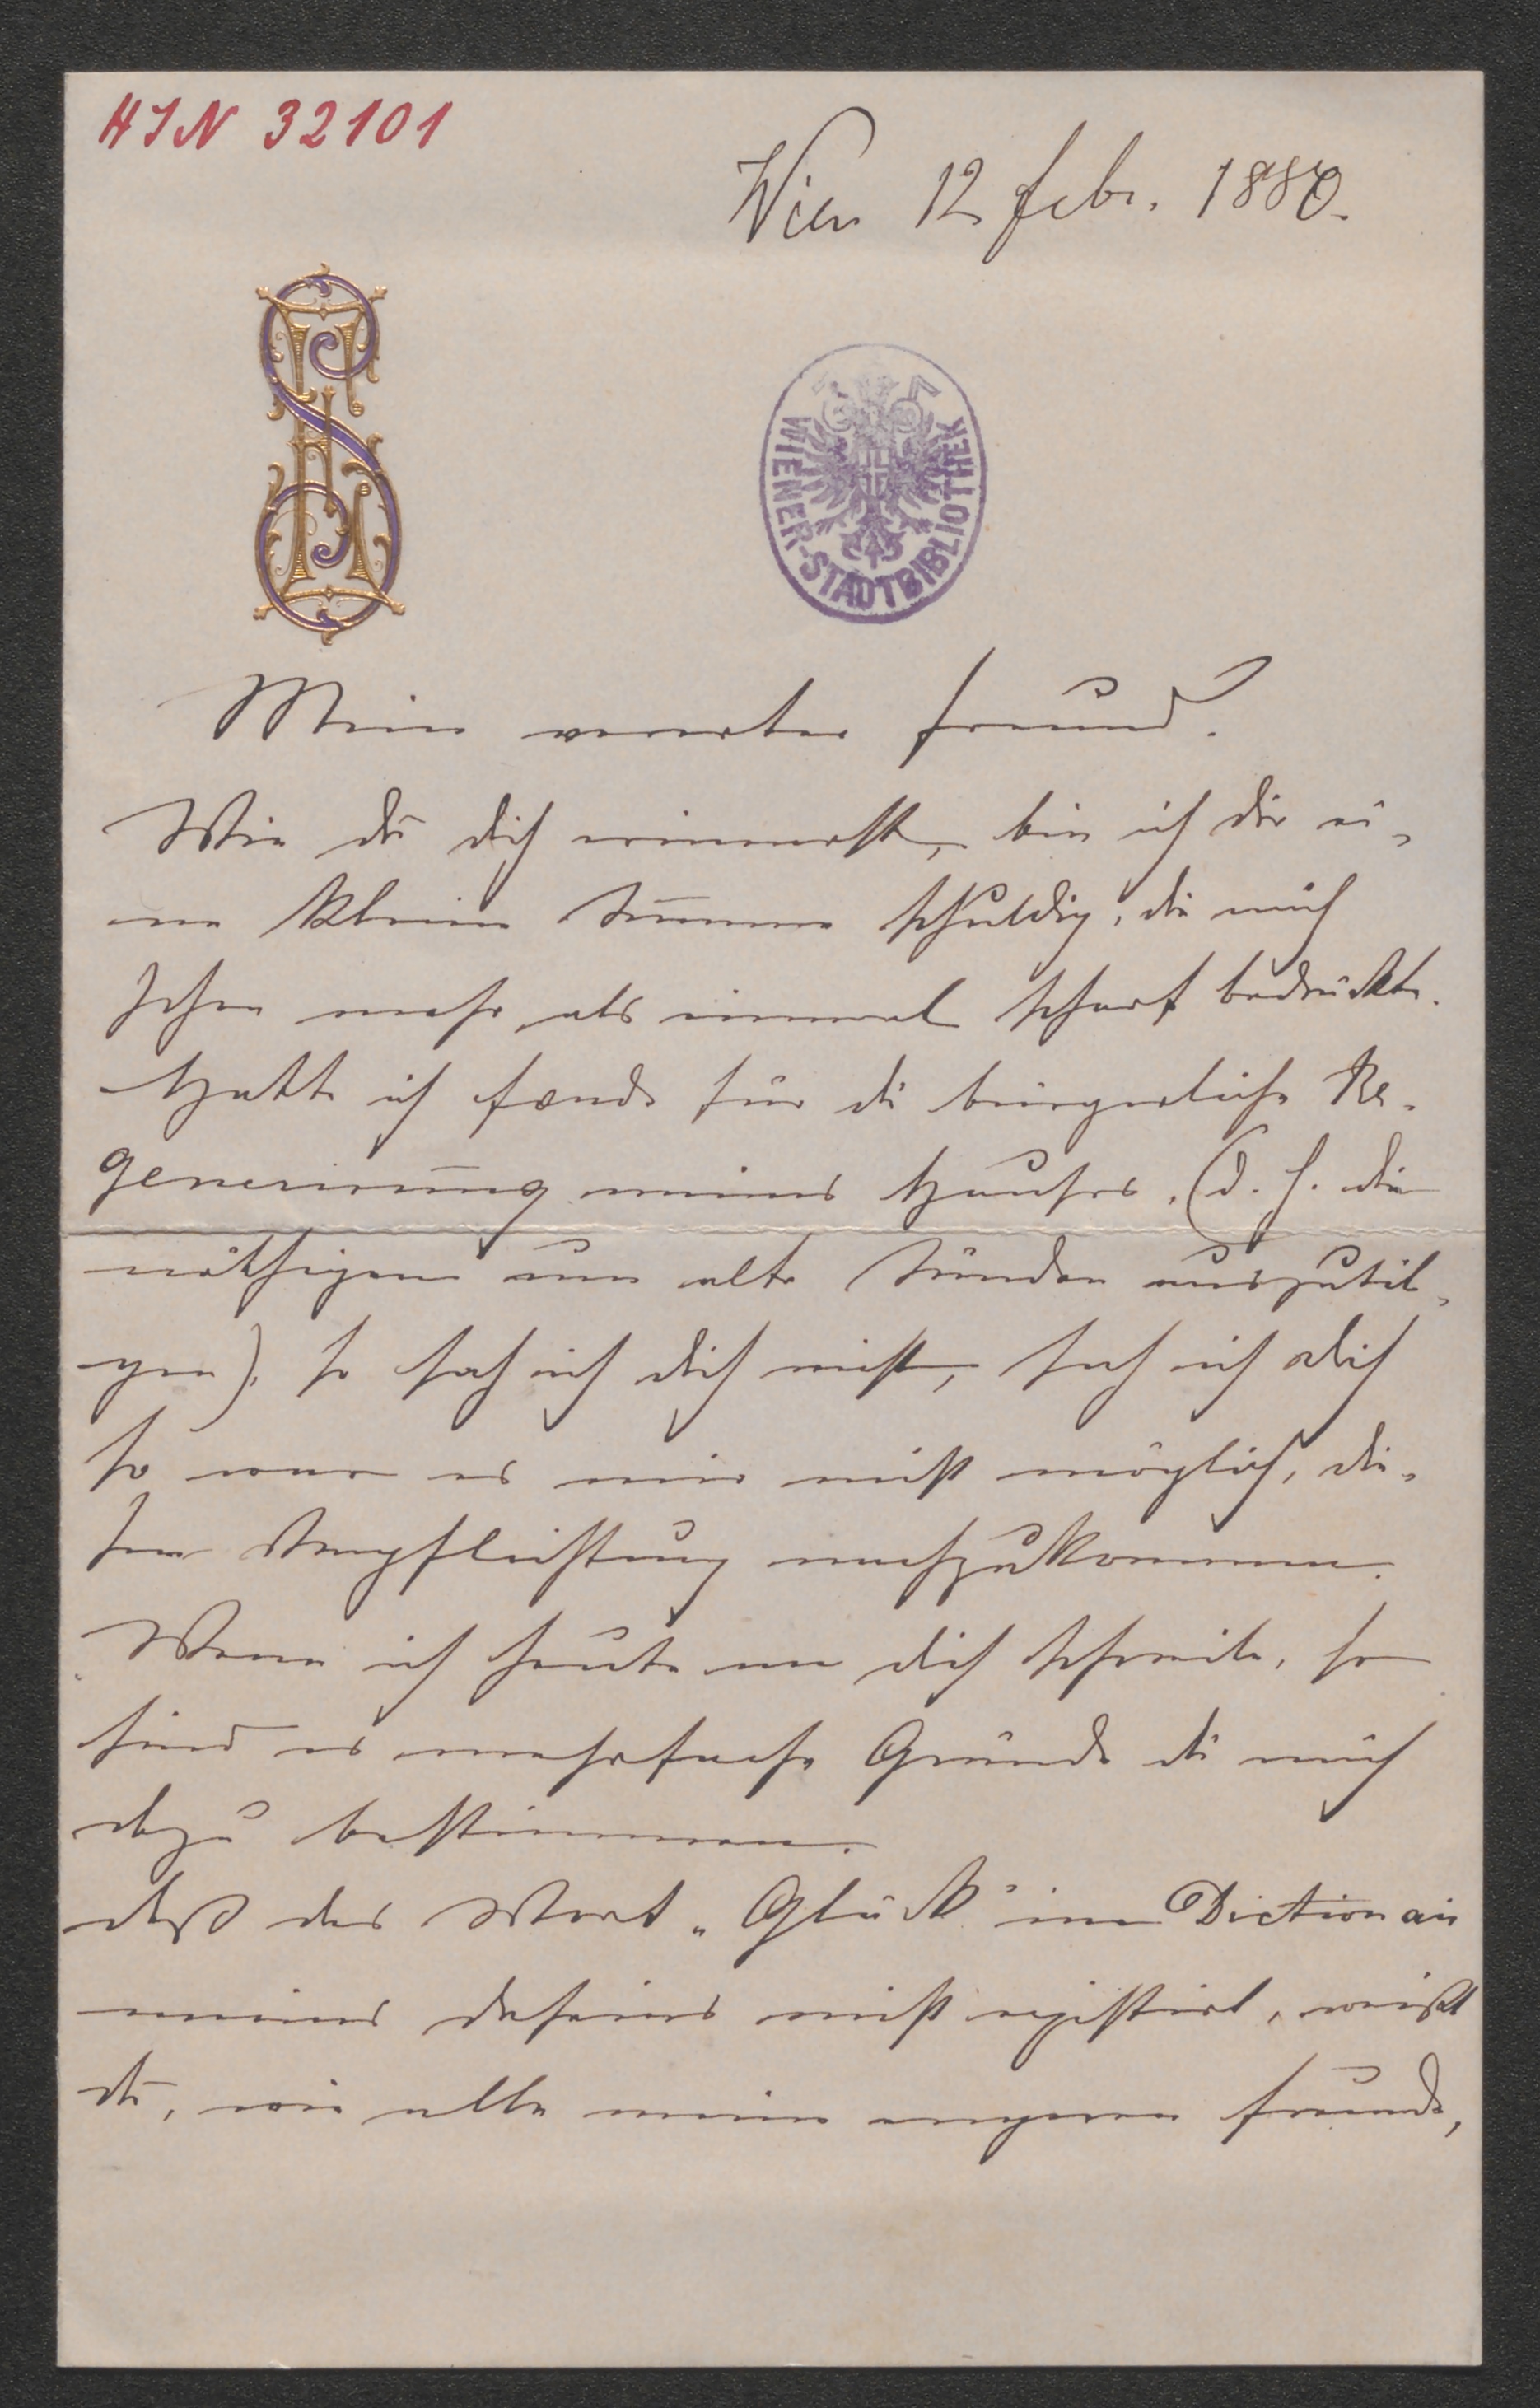 HIN 32101
Wien 12 febr. 1880.
WIENER-STADTBIBLIOTHEK
Mein werter Freund.
Wie du dich erinnerst, bin ich dir ei-
ne kleine Summe schuldig, die mich
schon mehr als einmal scharf bedrückte.
Hatte ich fonds für die bürgerliche Re-
generirung meines Hauses, (d. h. die
nöthigen um alte Sünden auszutil-
gen), so sah ich dich nicht, sah ich dich
so war es mir nicht möglich, die-
ser Verpflichtung nachzukommen.
Wenn ich heute an dich schreibe, so
sind es mehrfache Gründe die mich
dazu bestimmen.
daß das Wort „Glück" im Dictionair
meines daseins nicht registrirt, weißt
du, wie alle meine engeren Freunde,